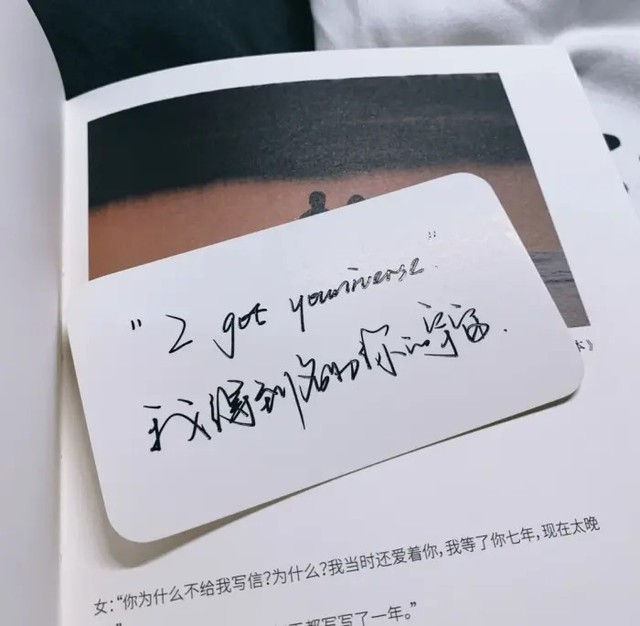 "I got youniverse."
我得到名为你的宇宙.
本》
女:“你为什么不给我写信?为什么?我当时还爱着你,我等了你七年,现在太晚
都写写了一年。”